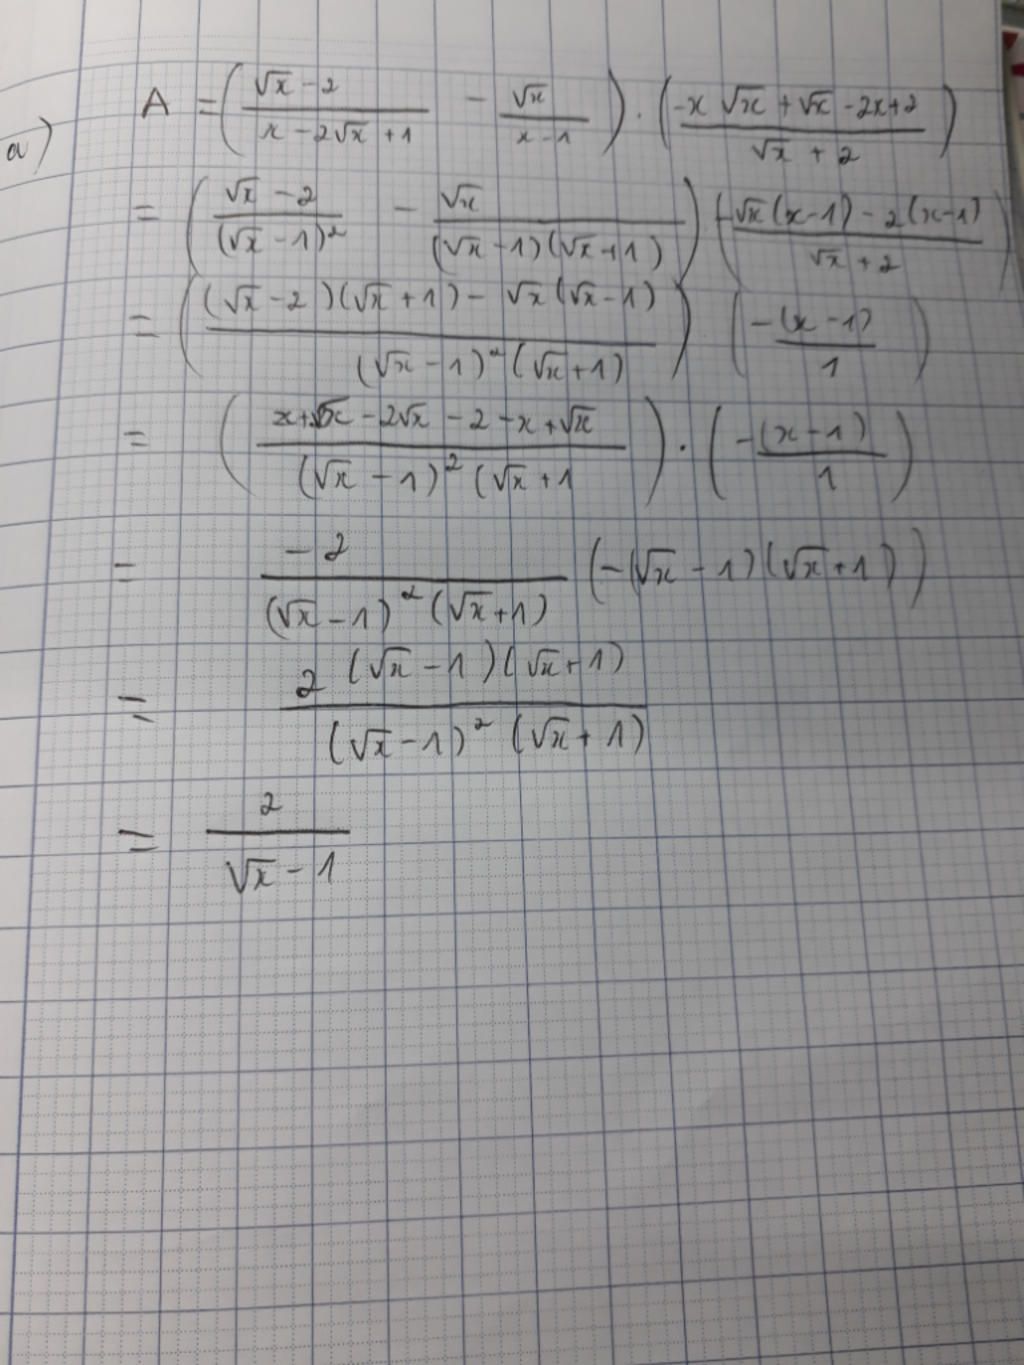 a) A = ( (√x - 2)/(x - 2√x + 1) - √x/(x - 1) ) . ( (-x√x + √x - 2x + 2)/(√x + 2) )
= ( (√x - 2)/(√x - 1)² - √x/((√x - 1)(√x + 1)) ) ( (-√x(x - 1) - 2(x - 1))/(√x + 2) )
= ( ((√x - 2)(√x + 1) - √x(√x - 1))/((√x - 1)²(√x + 1)) ) . ( -(x - 1)/1 )
= ( (x + √x - 2√x - 2 - x + √x)/((√x - 1)²(√x + 1) ) . ( -(x - 1)/1 )
= -2/((√x - 1)²(√x + 1)) (-(√x - 1)(√x + 1))
= 2(√x - 1)(√x + 1)/((√x - 1)²(√x + 1))
= 2/(√x - 1)